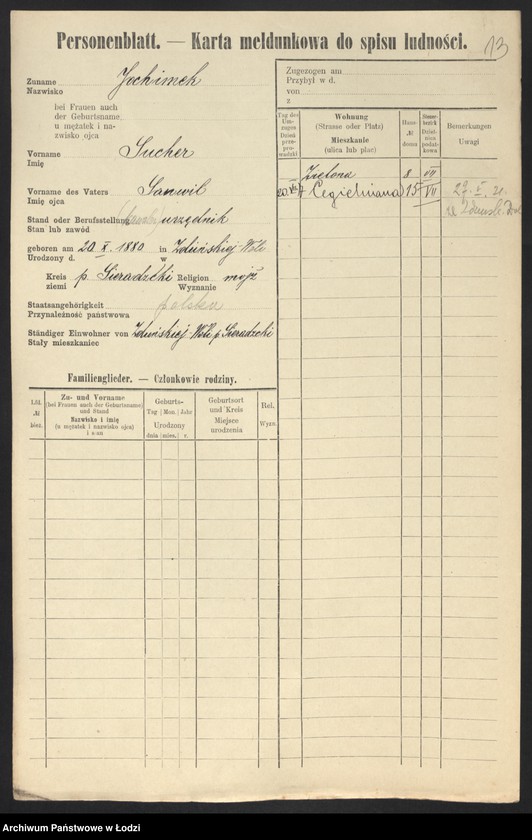 Personenblatt. — Karta meldunkowa do spisu ludności.
13
Zuname Jochimek
Nazwisko
bei Frauen auch
der Geburtsname,
u mężatek i na-
zwisko ojca
Vorname Sucher
Imię
Vorname des Vaters Sanwil
Imię ojca
Stand oder Berufsstellung urzędnik
Stan lub zawód
geboren am 20 X. 1880 in Zduńskiej-Woli
Urodzony d. w
Kreis p. Sieradzki Religion mojż
ziemi Wyznanie
Staatsangehörigkeit polska
Przynależność państwowa
Ständiger Einwohner von Zduńskiej-Woli p. Sieradzki
Stały mieszkaniec
Familienglieder. — Członkowie rodziny.
Lfd. № bież.
Zu- und Vorname
(bei Frauen auch der Geburtsname)
und Stand
Nazwisko i imię
(u mężatek i nazwisko ojca)
i stan
Geburts-
Tag Mon. Jahr
Urodzony
dnia mies. r.
Geburtsort
und Kreis
Miejsce
urodzenia
Rel.
Wyzn.
Zugezogen am
Przybył w d.
von
z
Tag des
Um-
zuges
Dzień
prze-
prowadzki
Wohnung
(Strasse oder Platz)
Mieszkanie
(ulica lub plac)
Haus-
№
domu
Steuer-
bezirk
Dziel-
nica
podat-
kowa
Bemerkungen
Uwagi
Zielona 8 VII
Cegielniana 15 VII